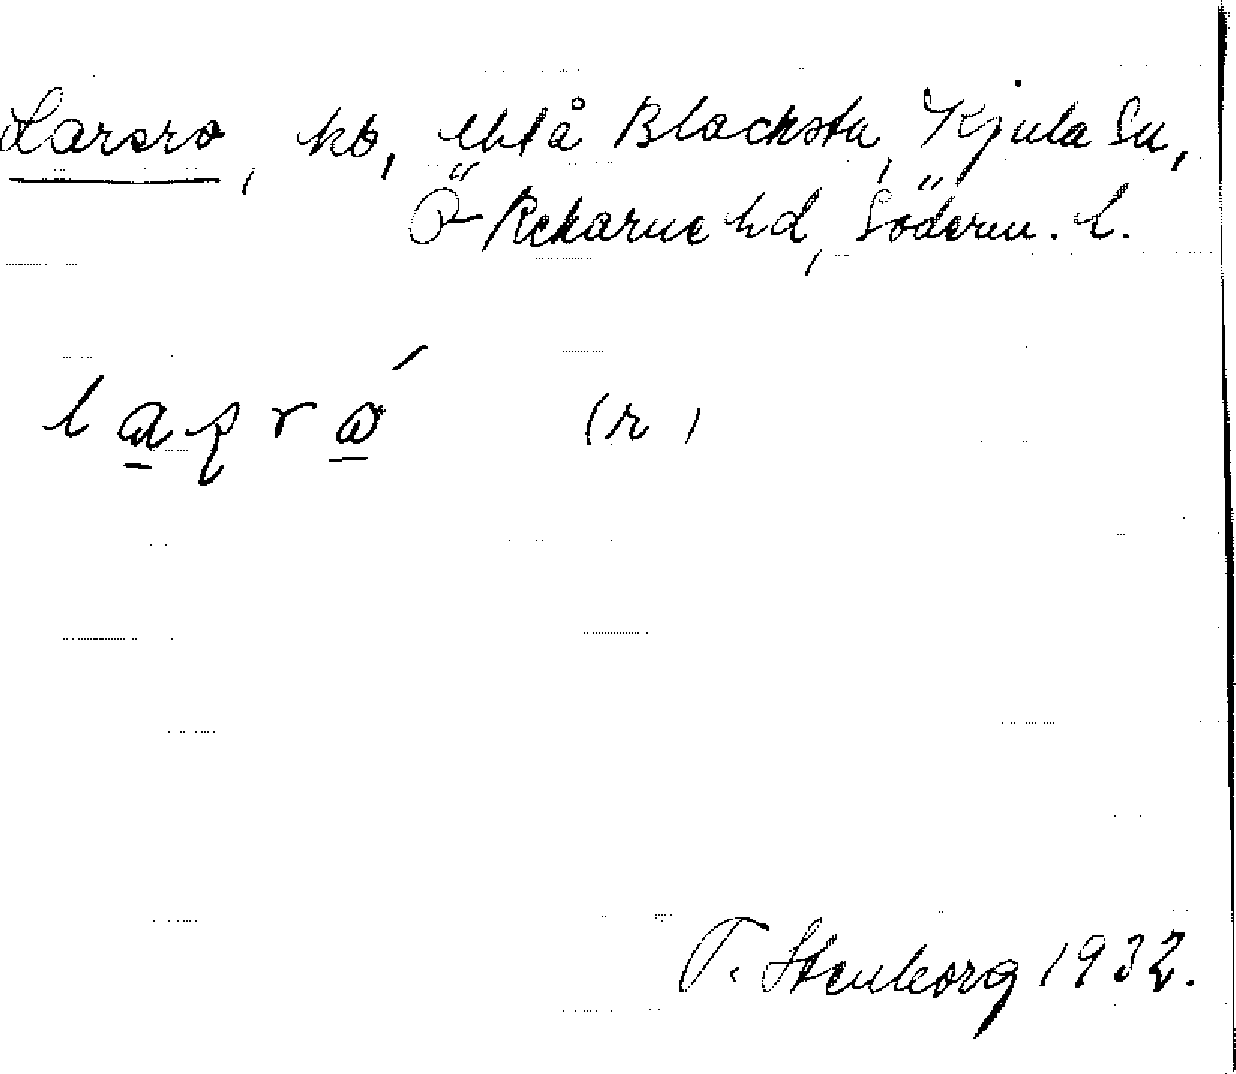 Larsro, ko, Ehlå Blacksta, Kjula sn,
Ö Rekarne hd, Söderm. l.
(r)
T. Stenborg 1932.